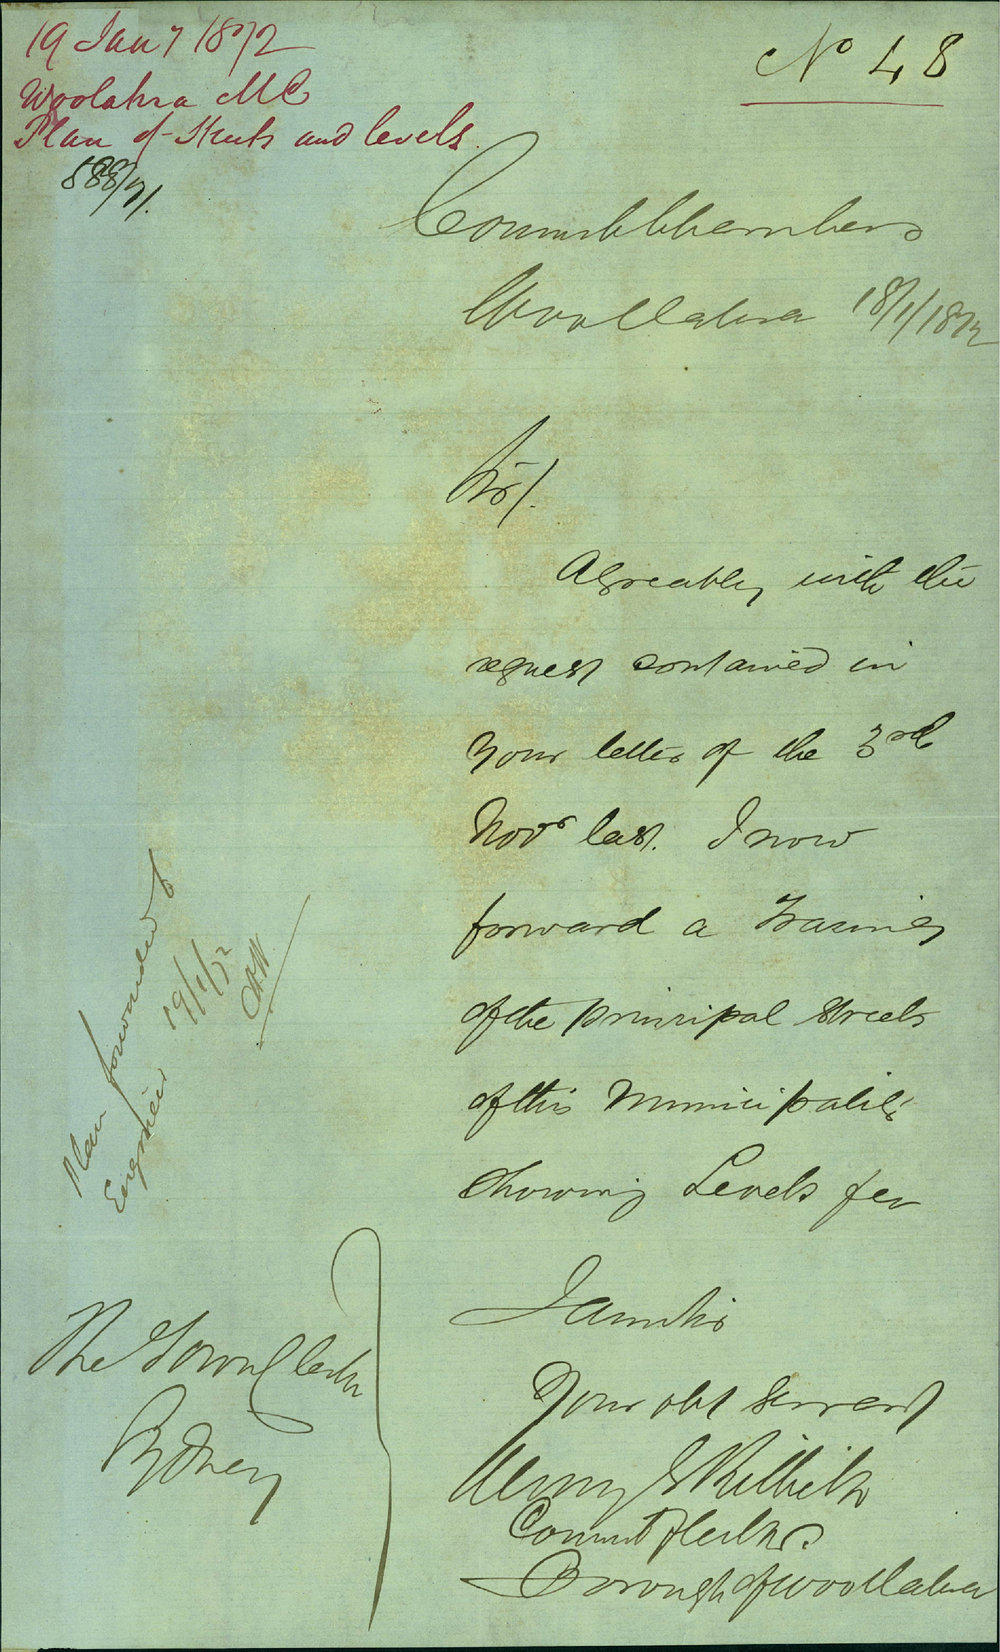 19 Jany 1872
Woolahra MC
Plan of Streets and levels
888/71.
No 48
Council Chambers
Woollahra 18/1/1872
Sir/.
Agreably with the
request contained in
Your letter of the 3rd
Novr last. I now
forward a Tracing
of the principal Streets
of this Municipality
showing Levels &c
I am Sir
Your obt servant
Henry J
Council Clerk
Borough of Woollahra
The Town Clerk
Sydney
Plan forwarded to
Engineer 19/1/72